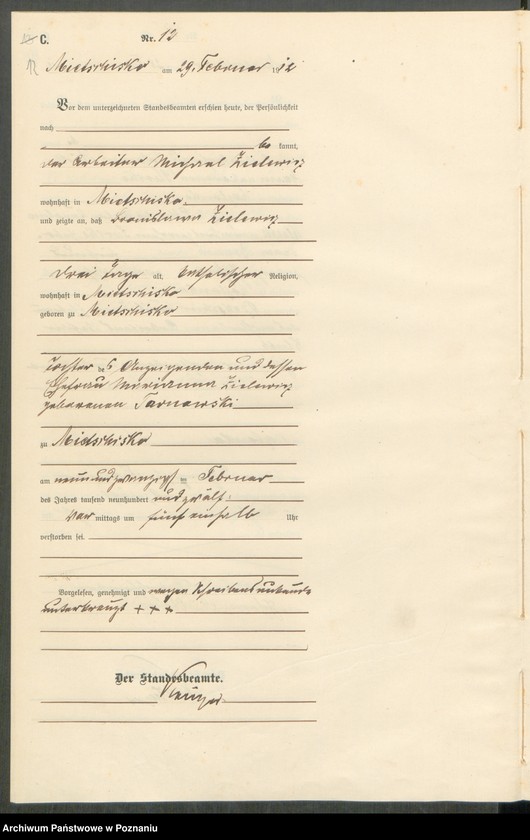 C.
Nr. 12
12
Mietschisko am 29. Februar 1912
Vor dem unterzeichneten Standesbeamten erschien heute, der Persönlichkeit
nach
be kannt,
der Arbeiter Michael Zielewicz
wohnhaft in Mietschisko
und zeigte an, daß Bronislawa Zielewicz
drei Tage alt, katholischer Religion,
wohnhaft in Mietschisko
geboren zu Mietschisko
Tochter des Anzeigenden und dessen
Ehefrau Marianna Zielewicz
geborenen Tarnowski
zu Mietschisko
am neunundzwanzigsten Februar
des Jahres tausend neunhundert und zwölf
Vor mittags um fünf einhalb Uhr
verstorben sei.
Vorgelesen, genehmigt und wegen Schreibensunkunde
unterkreuzt + + +
Der Standesbeamte.
Archiwum Państwowe w Poznaniu